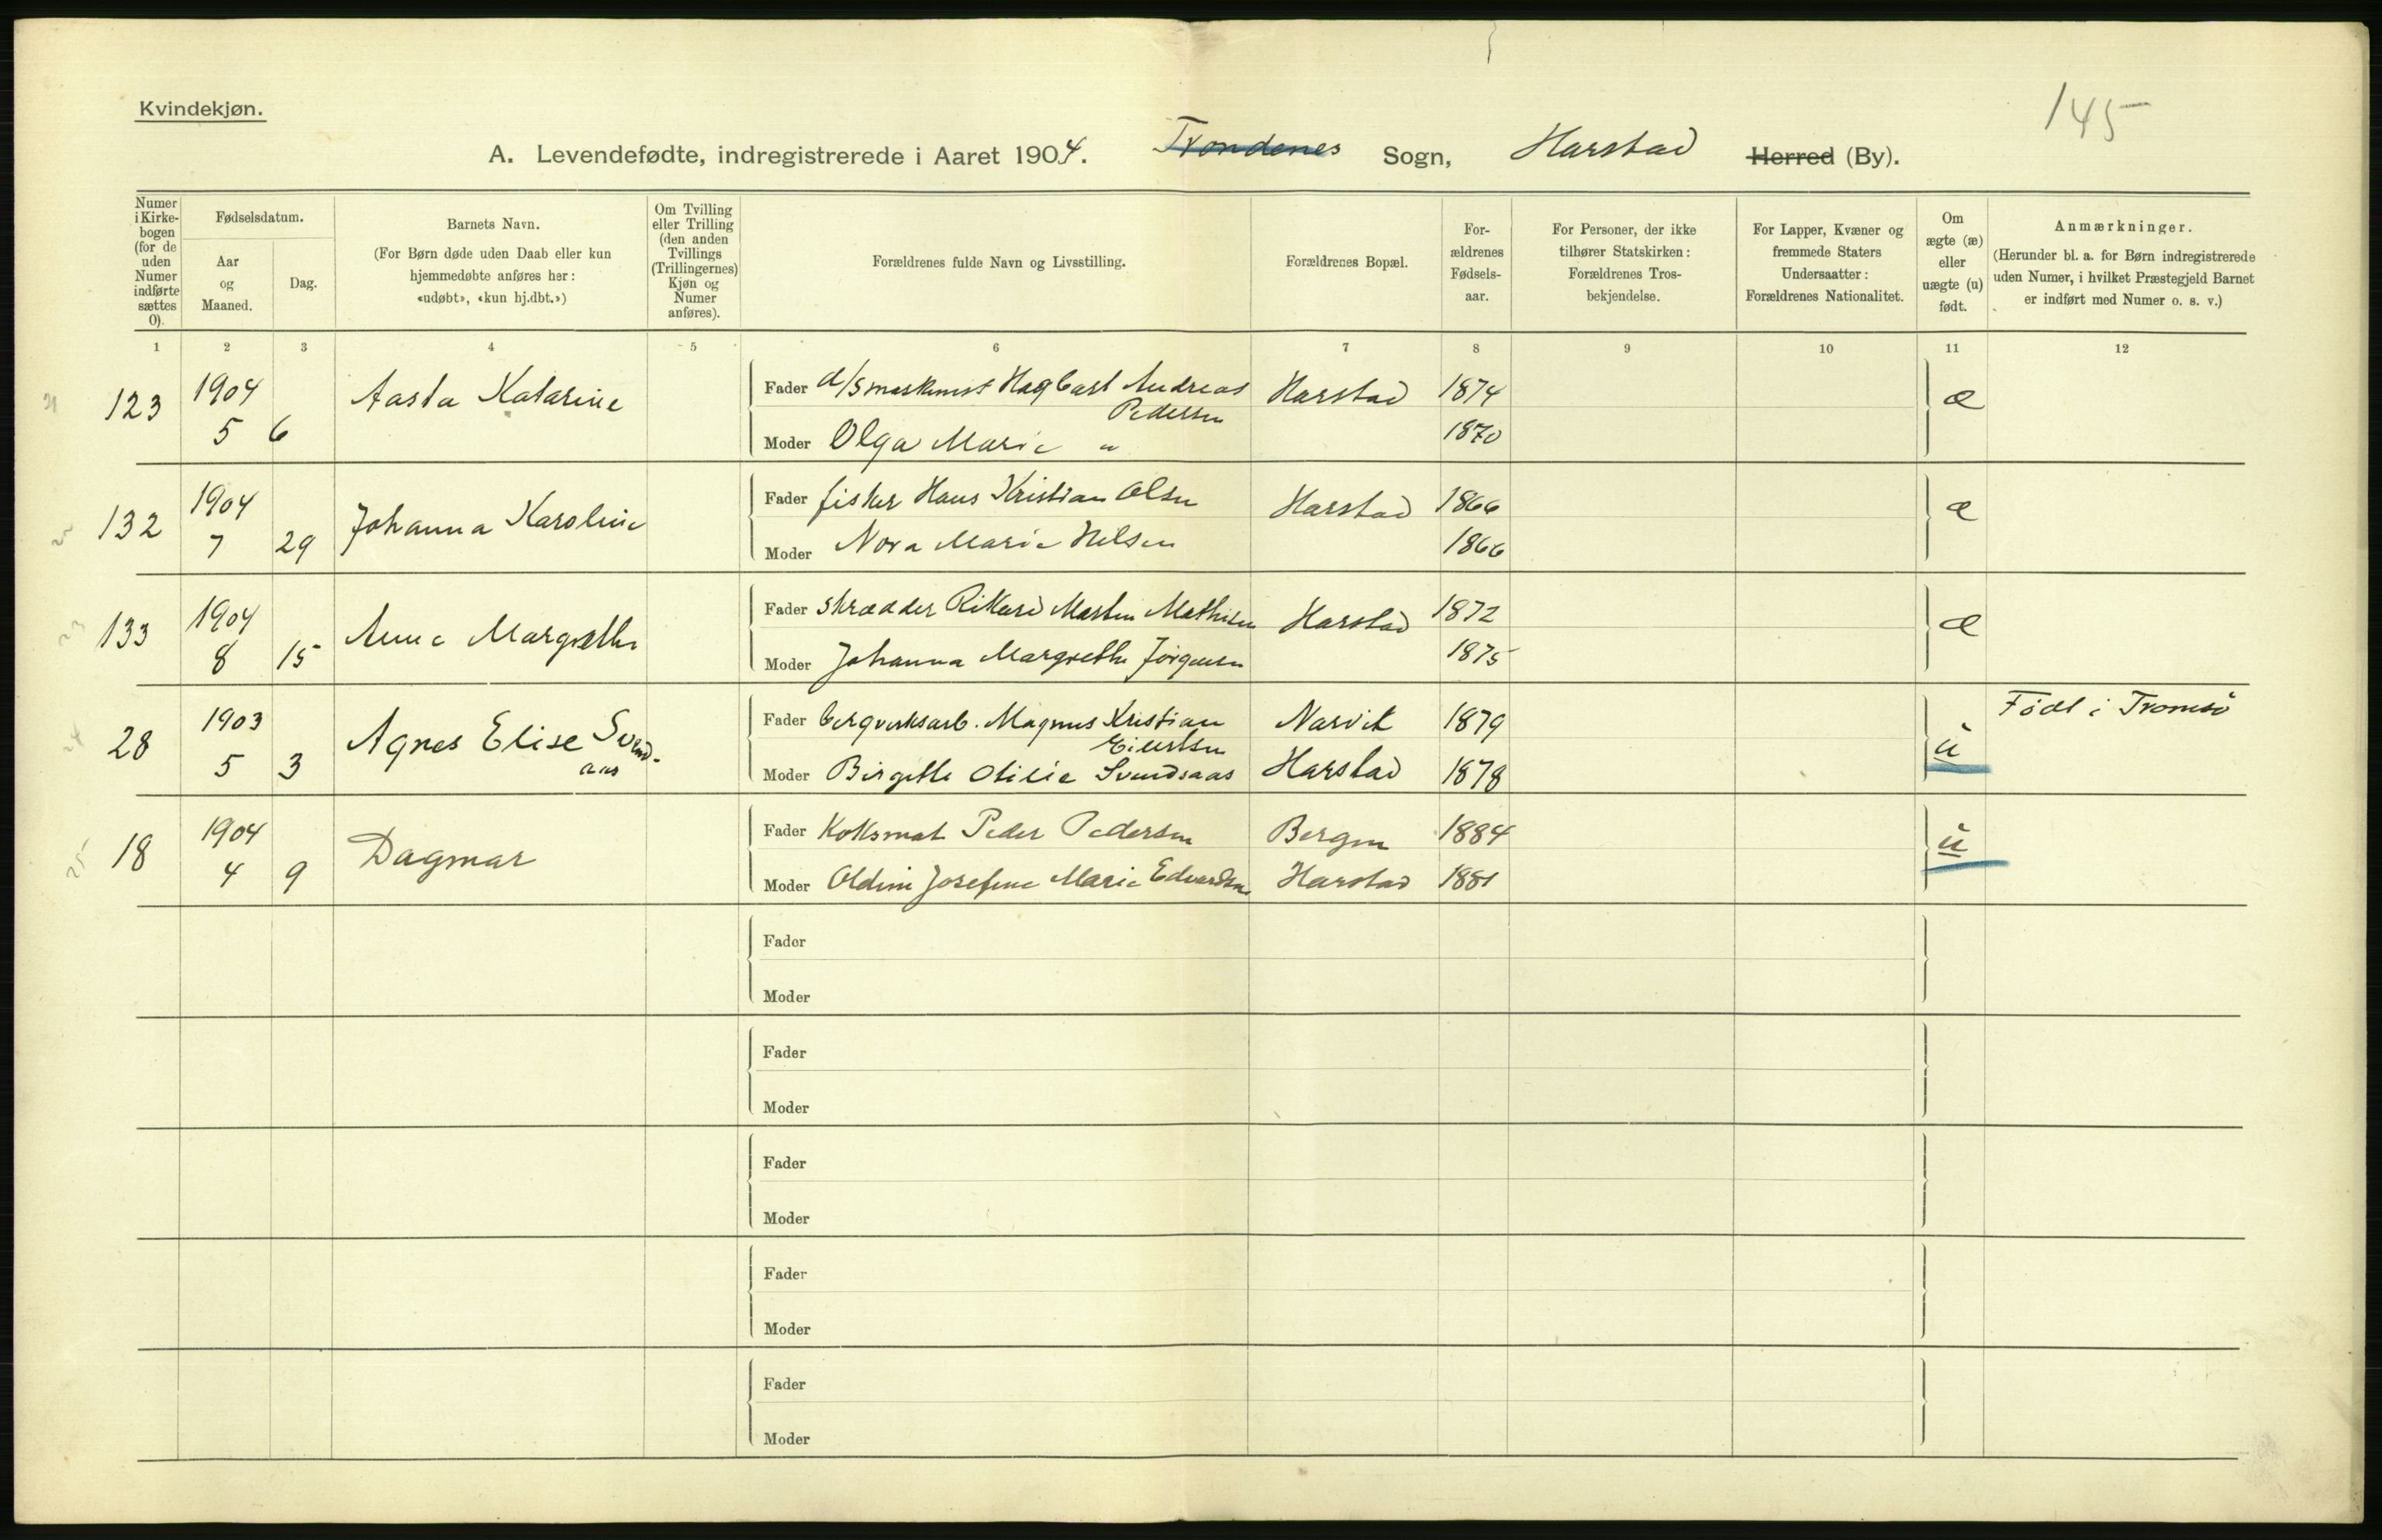 145
Kvindekjøn.
A. Levendefødte, indregistrerede i Aaret 1904. Trondenes Sogn, Harstad Herred (By).
Numer i Kirkebogen (for de uden Numer indførte sættes 0).
Fødselsdatum.
Aar og Maaned.
Dag.
Barnets Navn.
(For Børn døde uden Daab eller kun hjemmedøbte anføres her: «udøbt», «kun hj.dbt.»)
Om Tvilling eller Trilling (den anden Tvillings (Trillingernes) Kjøn og Numer anføres).
Forældrenes fulde Navn og Livsstilling.
Forældrenes Bopæl.
Forældrenes Fødselsaar.
For Personer, der ikke tilhører Statskirken: Forældrenes Trosbekjendelse.
For Lapper, Kvæner og fremmede Staters Undersaatter: Forældrenes Nationalitet.
Om ægte (æ) eller uægte (u) født.
Anmærkninger.
(Herunder bl. a. for Børn indregistrerede uden Numer, i hvilket Præstegjeld Barnet er indført med Numer o. s. v.)
1 2 3 4 5 6 7 8 9 10 11 12
21 123 1904 5 6 Aasta Katarine
Fader d/s maskinist Hagbart Andreas Pedersen Harstad 1874 æ
Moder Olga Marie " 1870
22 132 1904 7 29 Johanna Karoline
Fader fisker Hans Kristian Olsen Harstad 1866 æ
Moder Nora Marie Nilsen 1866
23 133 1904 8 15 Anne Margrethe
Fader Skrædder Rikard Martin Mathisen Harstad 1872 æ
Moder Johanna Margrethe Jørgensen 1875
24 28 1903 5 3 Agnes Elise Svendsaas
Fader bergverksarb. Magnus Kristian Eilertsen Narvik 1879 u Født i Tromsø
Moder Birgitte Otilie Svendsaas Harstad 1878
25 18 1904 4 9 Dagmar
Fader Koksmat Peder Pedersen Bergen 1884 u
Moder Oldine Josefine Marie Edvardsen Harstad 1881
Fader
Moder
Fader
Moder
Fader
Moder
Fader
Moder
Fader
Moder